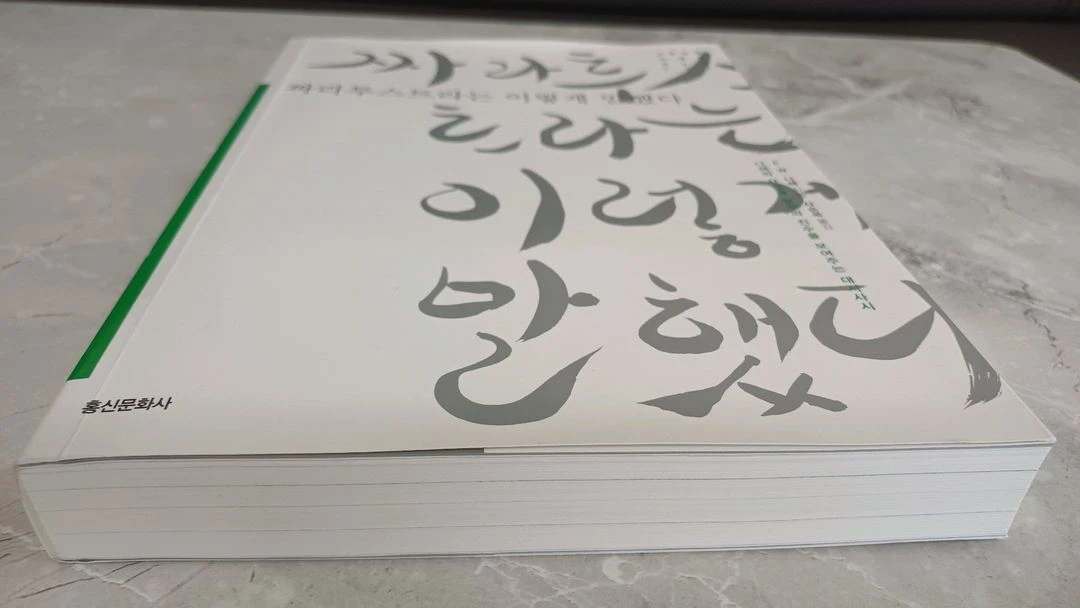 짜라투스
트라는
이렇게
말했다
짜라투스트라는 이렇게 말했다
홍신문화사